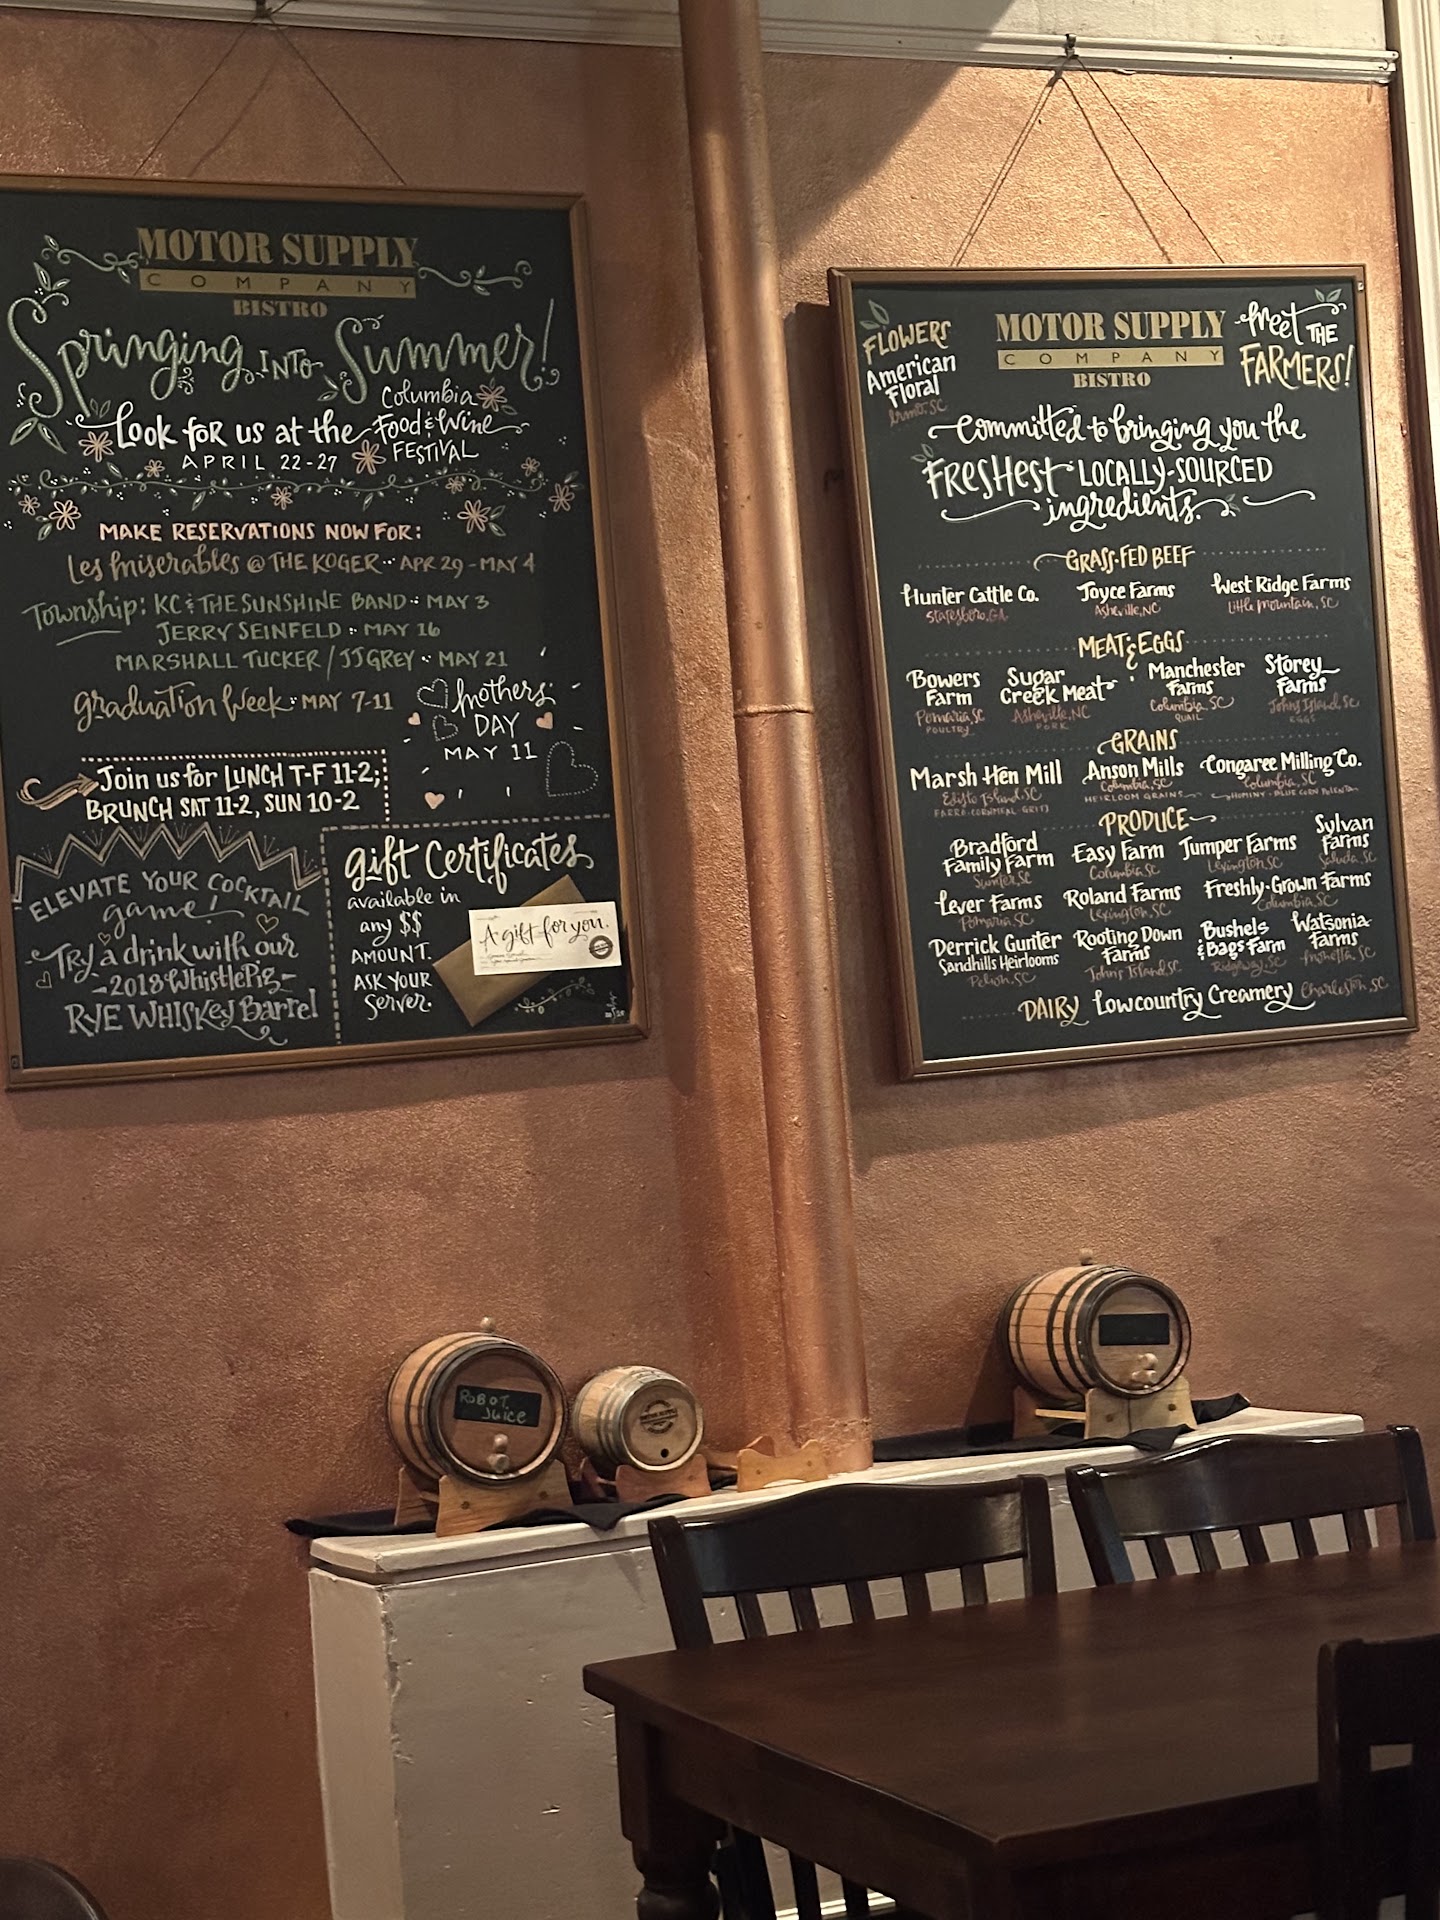 MOTOR SUPPLY
COMPANY
BISTRO
Springing INTO Summer!
Look for us at the Columbia Food & Wine FESTIVAL
APRIL 22-27
MAKE RESERVATIONS NOW FOR:
Les Miserables @ THE KOGER APR 29 - MAY 4
Township: KC & THE SUNSHINE BAND MAY 3
JERRY SEINFELD MAY 16
MARSHALL TUCKER / JJ GREY MAY 21
Graduation Week MAY 7-11
Mothers
DAY
MAY 11
Join us for LUNCH T-F 11-2;
BRUNCH SAT 11-2, SUN 10-2
ELEVATE YOUR COCKTAIL
game!
Try a drink with our
2018 WhistlePig
RYE WHISKEY Barrel
Gift Certificates
available in
any $$
AMOUNT.
ASK YOUR
Server.
A gift for you.
FLOWERS
American
Floral
Irmo, SC
MOTOR SUPPLY
COMPANY
BISTRO
Meet THE
FARMERS!
Committed to bringing you the
FRESHEST LOCALLY-SOURCED
ingredients.
GRASS-FED BEEF
Hunter Cattle Co. Joyce Farms West Ridge Farms
Statesboro, GA Asheville, NC Little Mountain, SC
MEAT & EGGS
Bowers Farm Sugar Creek Meat Manchester Farms Storey Farms
Pomaria, SC Asheville, NC Columbia, SC Johns Island, SC
POULTRY PORK QUAIL EGGS
GRAINS
Marsh Hen Mill Anson Mills Congaree Milling Co.
Edisto Island, SC Columbia, SC Columbia, SC
FARRO·CORNMEAL·GRITS HEIRLOOM GRAINS HOMINY·BLUE CORN POLENTA
PRODUCE
Bradford Family Farm Easy Farm Jumper Farms Sylvan Farms
Sumter, SC Columbia, SC Lexington, SC Saluda, SC
Lever Farms Roland Farms Freshly-Grown Farms
Pomaria, SC Lexington, SC Columbia, SC
Derrick Gunter Sandhills Heirlooms Rooting Down Farms Bushels & Bags Farm Watsonia Farms
Pelion, SC Johns Island, SC Ridgeway, SC Monetta, SC
DAIRY Lowcountry Creamery Charleston, SC
ROBOT
JUICE